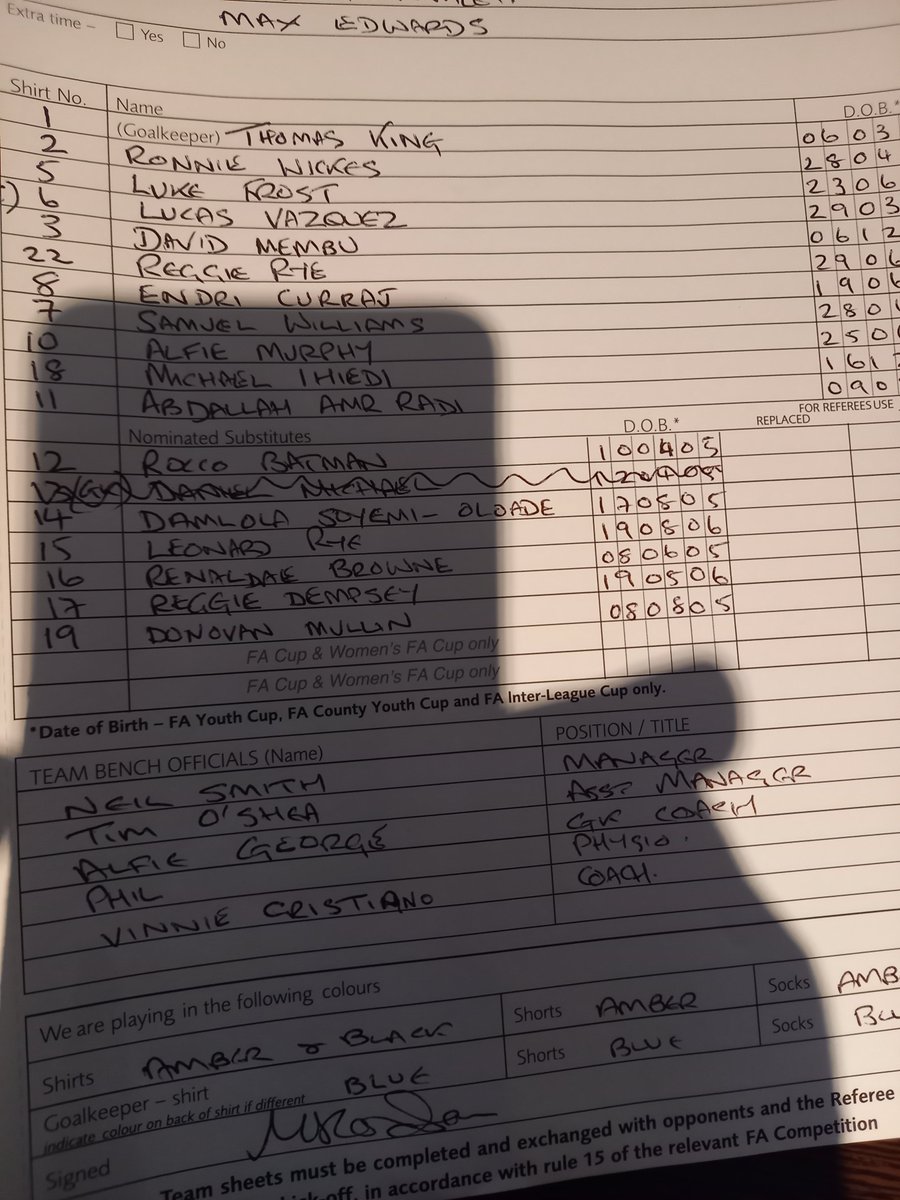 MAX EDWARDS
Extra time – Yes No
Shirt No. Name D.O.B.*
1 (Goalkeeper) THOMAS KING 0603
2 RONNIE WICKES 2804
5 LUKE FROST 2306
6 LUCAS VAZQUEZ 2903
3 DAVID MEMBU 0612
22 REGGIE RYE 2906
8 ENDRI CURRAJ 1906
7 SAMUEL WILLIAMS 280
10 ALFIE MURPHY 250
18 MICHAEL IHIEDI 161
11 ABDALLAH AMR RADI 090
Nominated Substitutes D.O.B.* REPLACED FOR REFEREES USE
12 ROCCO BATMAN 100405
13(GK) DANIEL MICHAEL
14 DAMLOLA SOYEMI-OLOADE 170805
15 LEONARD RYE 190806
16 RENALDAE BROWNE 080605
17 REGGIE DEMPSEY 190506
19 DONOVAN MULLIN 080805
FA Cup & Women's FA Cup only
FA Cup & Women's FA Cup only
*Date of Birth – FA Youth Cup, FA County Youth Cup and FA Inter-League Cup only.
TEAM BENCH OFFICIALS (Name) POSITION / TITLE
NEIL SMITH MANAGER
TIM O'SHEA ASST MANAGER
ALFIE GEORGE GK COACH
PHIL PHYSIO.
VINNIE CRISTIANO COACH.
We are playing in the following colours
Shirts AMBER & BLACK Shorts AMBER Socks AMB
Goalkeeper – shirt BLUE Shorts BLUE Socks BLU
indicate colour on back of shirt if different
Signed
Team sheets must be completed and exchanged with opponents and the Referee
kick-off, in accordance with rule 15 of the relevant FA Competition